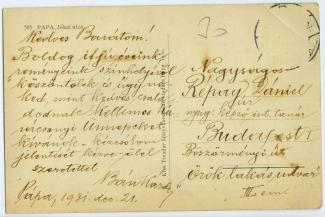 565 PÁPA, Jókai utca
Kedves Barátom!
Boldog ifjú éveink
reményeink színhelyéről
köszöntelek és úgy ne-
ked, mint kedves csalá-
dodnak kellemes ka-
rácsonyi ünnepeket
kívánok - kézcsókom
jelentését kérve, ölel
szeretettel
Pápa, 1931. dec. 21.
Nagyságos
Répay Dániel
úr
nyug. képző int. tanár
Budapest I
Böszörményi út
Örök lakás udvar
III. em.